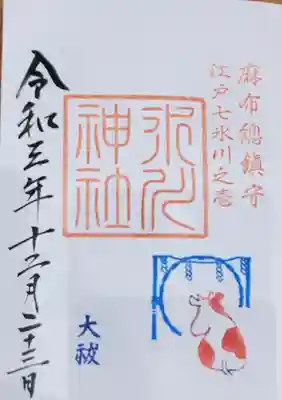 麻布總鎮守
江戸七氷川之壱
氷川神社
大祓
令和三年十二月二十三日